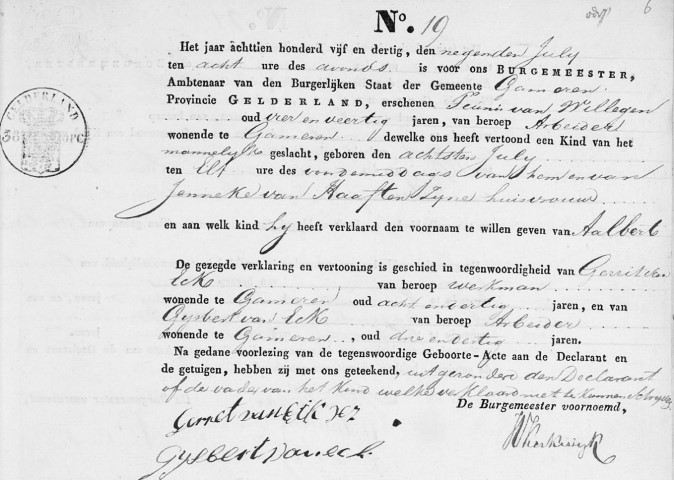 6
N.º 19
Het jaar achttien honderd vijf en dertig, den negenden July
ten acht ure des avonds is voor ons BURGEMEESTER,
Ambtenaar van den Burgerlijken Staat der Gemeente Gameren
Provincie GELDERLAND, erschenen Teunis van Willegen
oud vier en veertig jaren, van beroep Arbeider
wonende te Gameren dewelke ons heeft vertoond een Kind van het
mannelyk geslacht, geboren den achtsten July
ten Elf ure des voordemiddags van hem en van
Jenneke van Haaften zyne huisvrouw
en aan welk kind hy heeft verklaard den voornaam te willen geven van Aalbert
De gezegde verklaring en vertooning is geschied in tegenwoordigheid van Gerrit van
Eck, van beroep werkman
wonende te Gameren oud acht en dertig jaren, en van
Gysbert van Eck van beroep Arbeider
wonende te Gameren, oud drie en dertig jaren.
Na gedane voorlezing van de tegenswoordige Geboorte-Acte aan de Declarant en
de getuigen, hebben zij met ons geteekend, uitgezonderd den Declarant
of de vader van het Kind welke verklaard niet te kunnen schryven
De Burgemeester voornoemd,
Gerret van Eck
Gysbert van eck
GELDERLAND